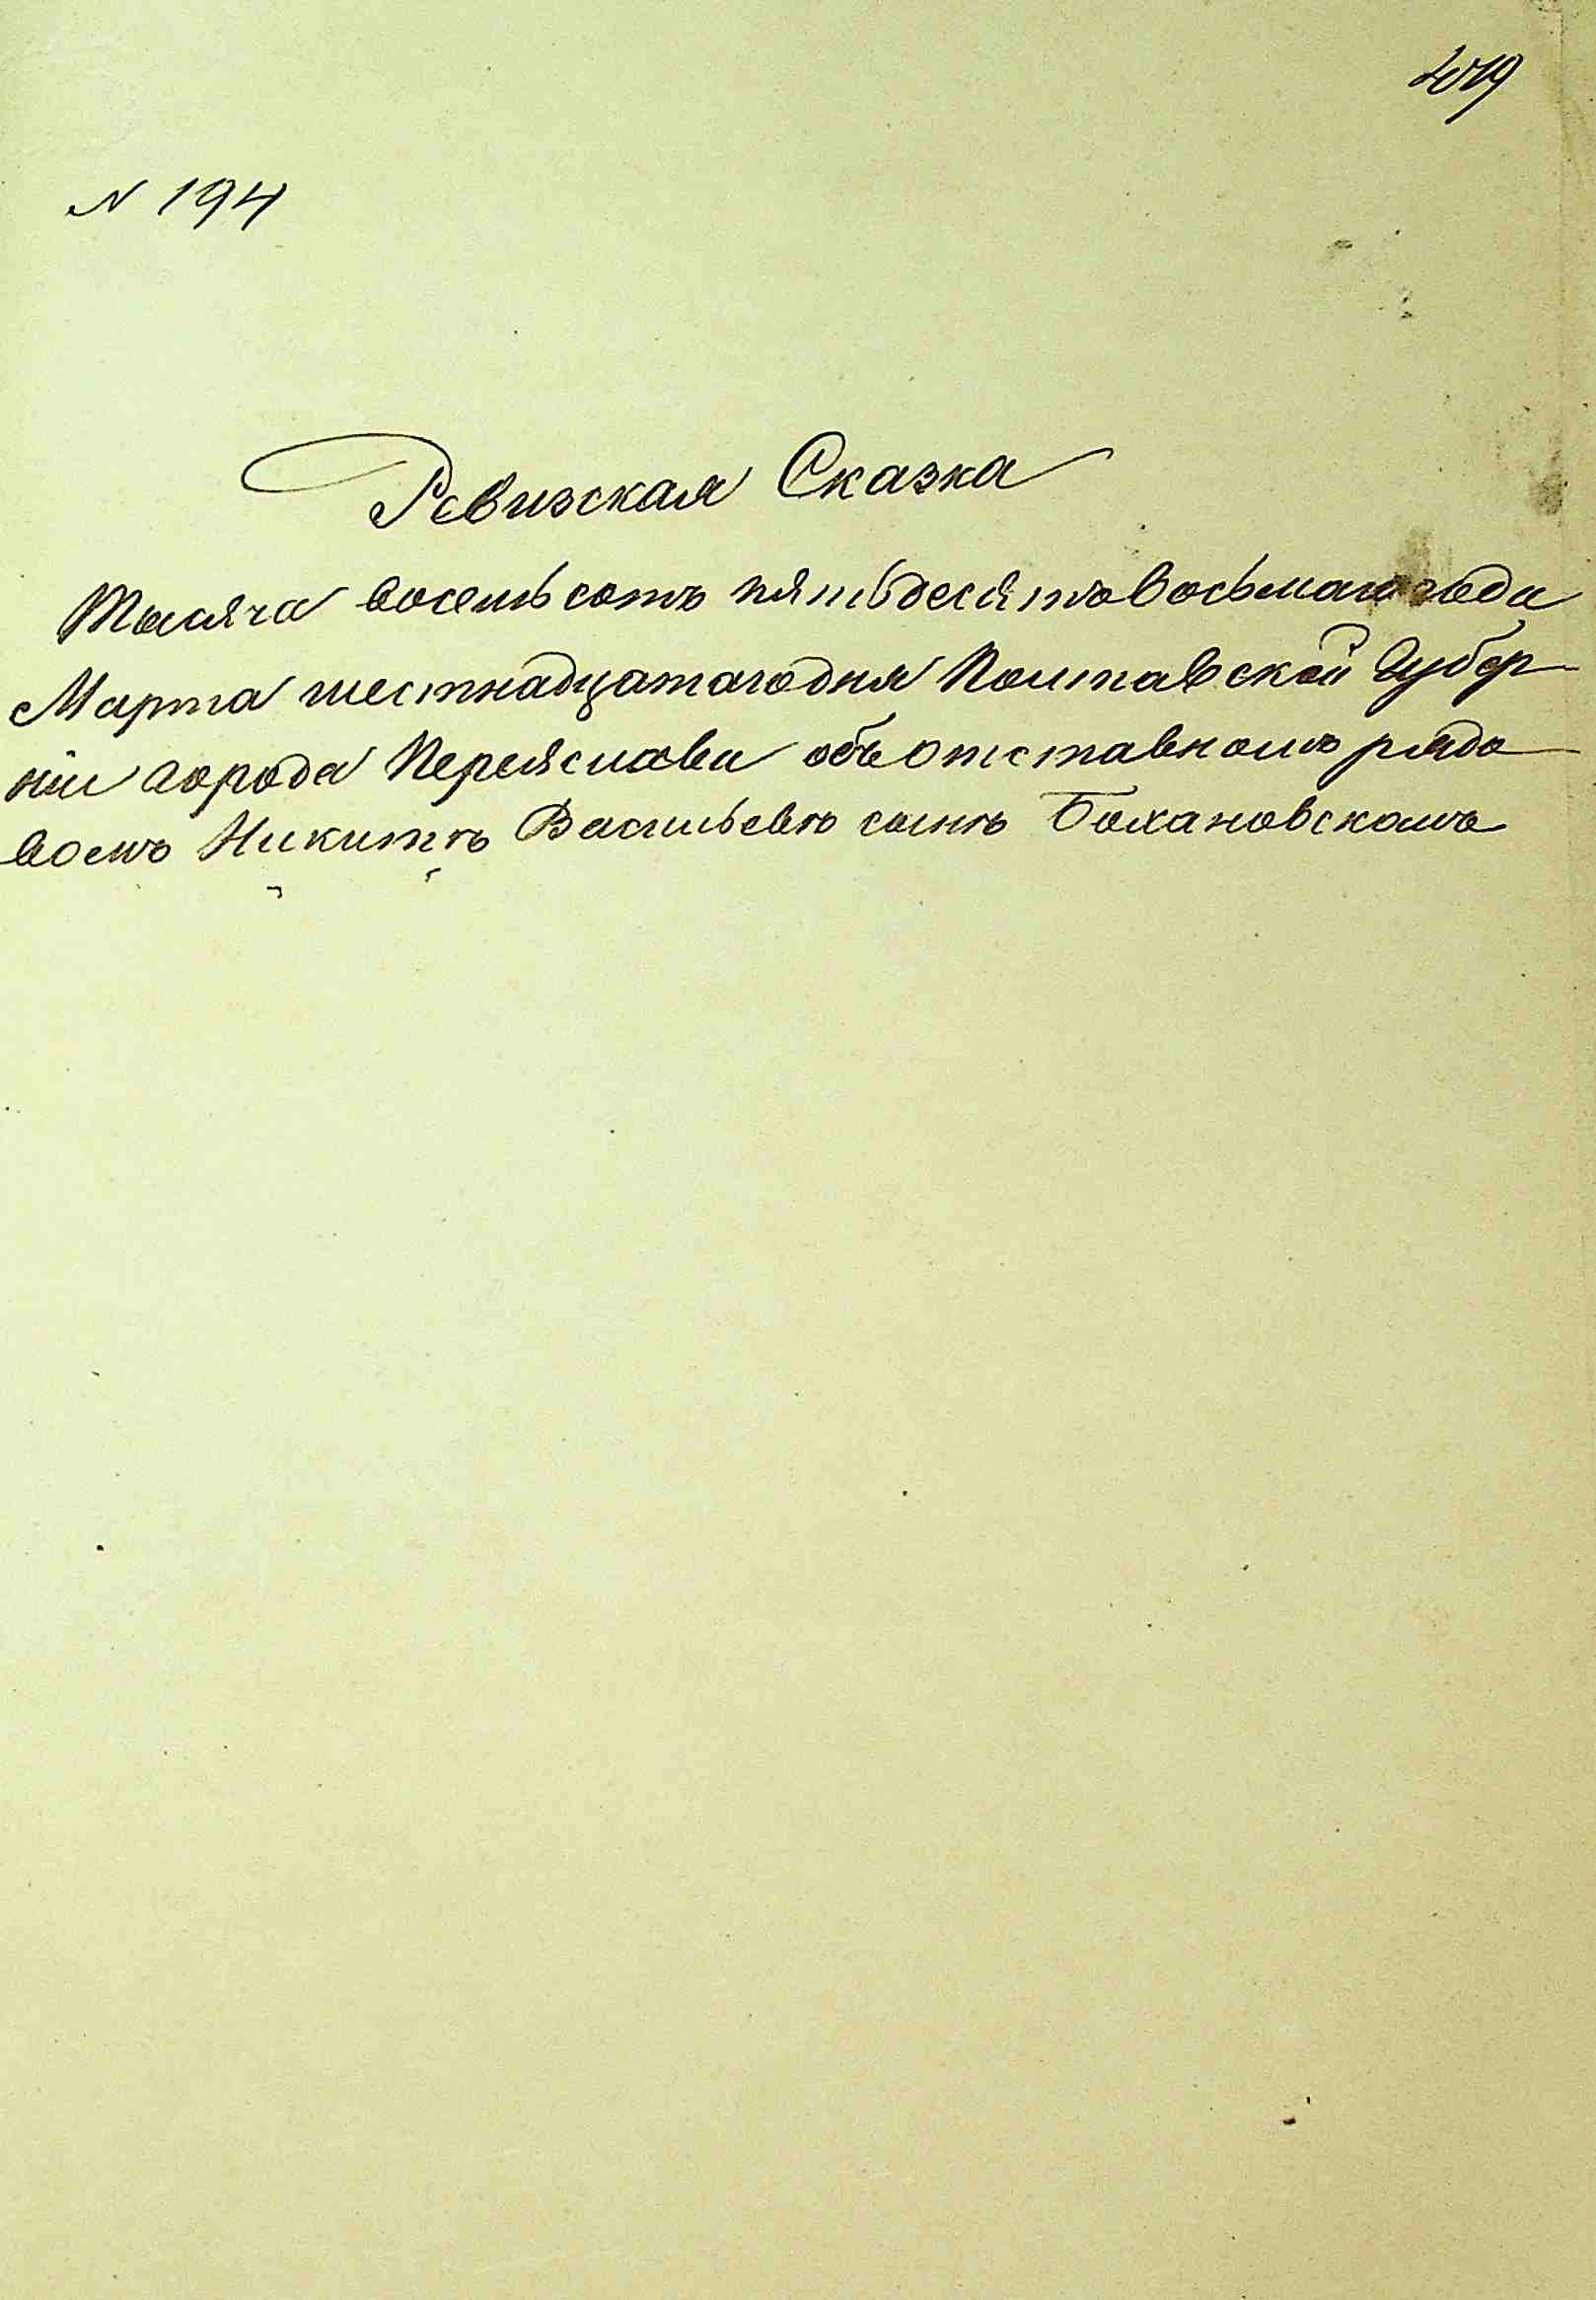 419
N 194
Ревизская Сказка
Тысяча восемь сотъ пятьдесятъ восьмаго года
Марта шестнадцатаго дня Полтавской Губер
ніи города Переяслава объ отставномъ рядо
вомъ Никитѣ Васильевѣ сынѣ Бохановскомъ